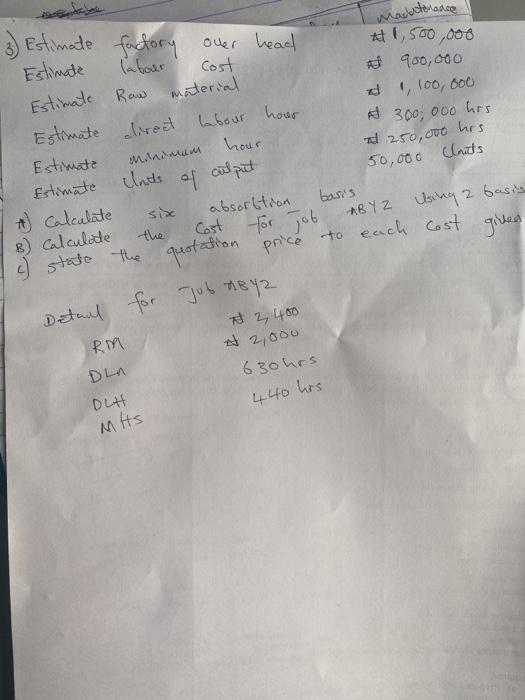 maintenance
3) Estimate factory over head ₦ 1,500,000
Estimate labour cost ₦ 900,000
Estimate Raw material ₦ 1,100,000
Estimate direct labour hour ₦ 300,000 hrs
Estimate minimum hour ₦ 250,000 hrs
Estimate Units of output 50,000 Units
A) Calculate six absorbtion basis
B) Calculate the cost for job ABYZ Using 2 basis
c) state the quotation price to each cost given
Detail for Job ABYZ
RM ₦ 2,400
DLA ₦ 2,000
DLH 630 hrs
MHs 440 hrs